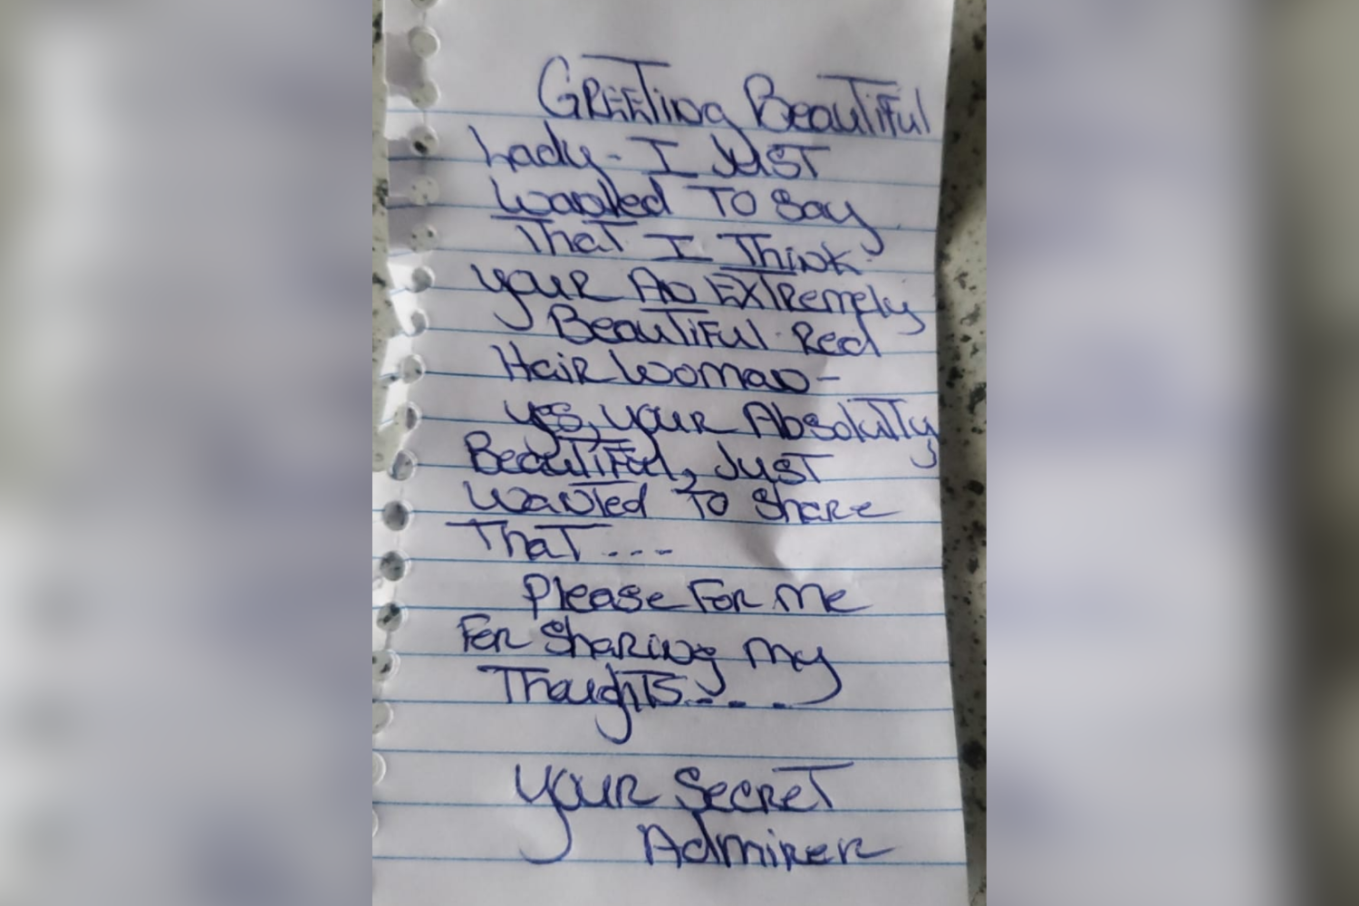 Greeting Beautiful
Lady - I Just
Wanted To Say
That I Think
your An Extremely
Beautiful Red
Hair Woman -
yes, your Absolutly
Beautiful, Just
Wanted To Share
That ...
Please For me
For Sharing my
Thoughts ....
your Secret
Admirer